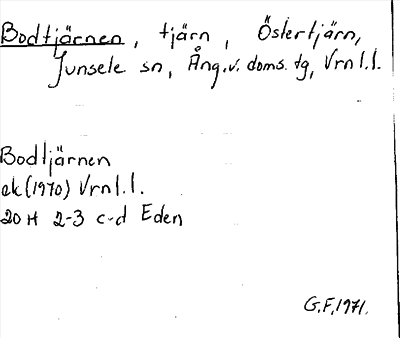 Bodtjärnen, tjärn, Östertjärn,
Junsele sn, Ång.v. doms. tg, Vrn l.l.
Bodtjärnen
ek (1970) Vrn l.l.
20 H 2-3 c-d Eden
G.F. 1971.